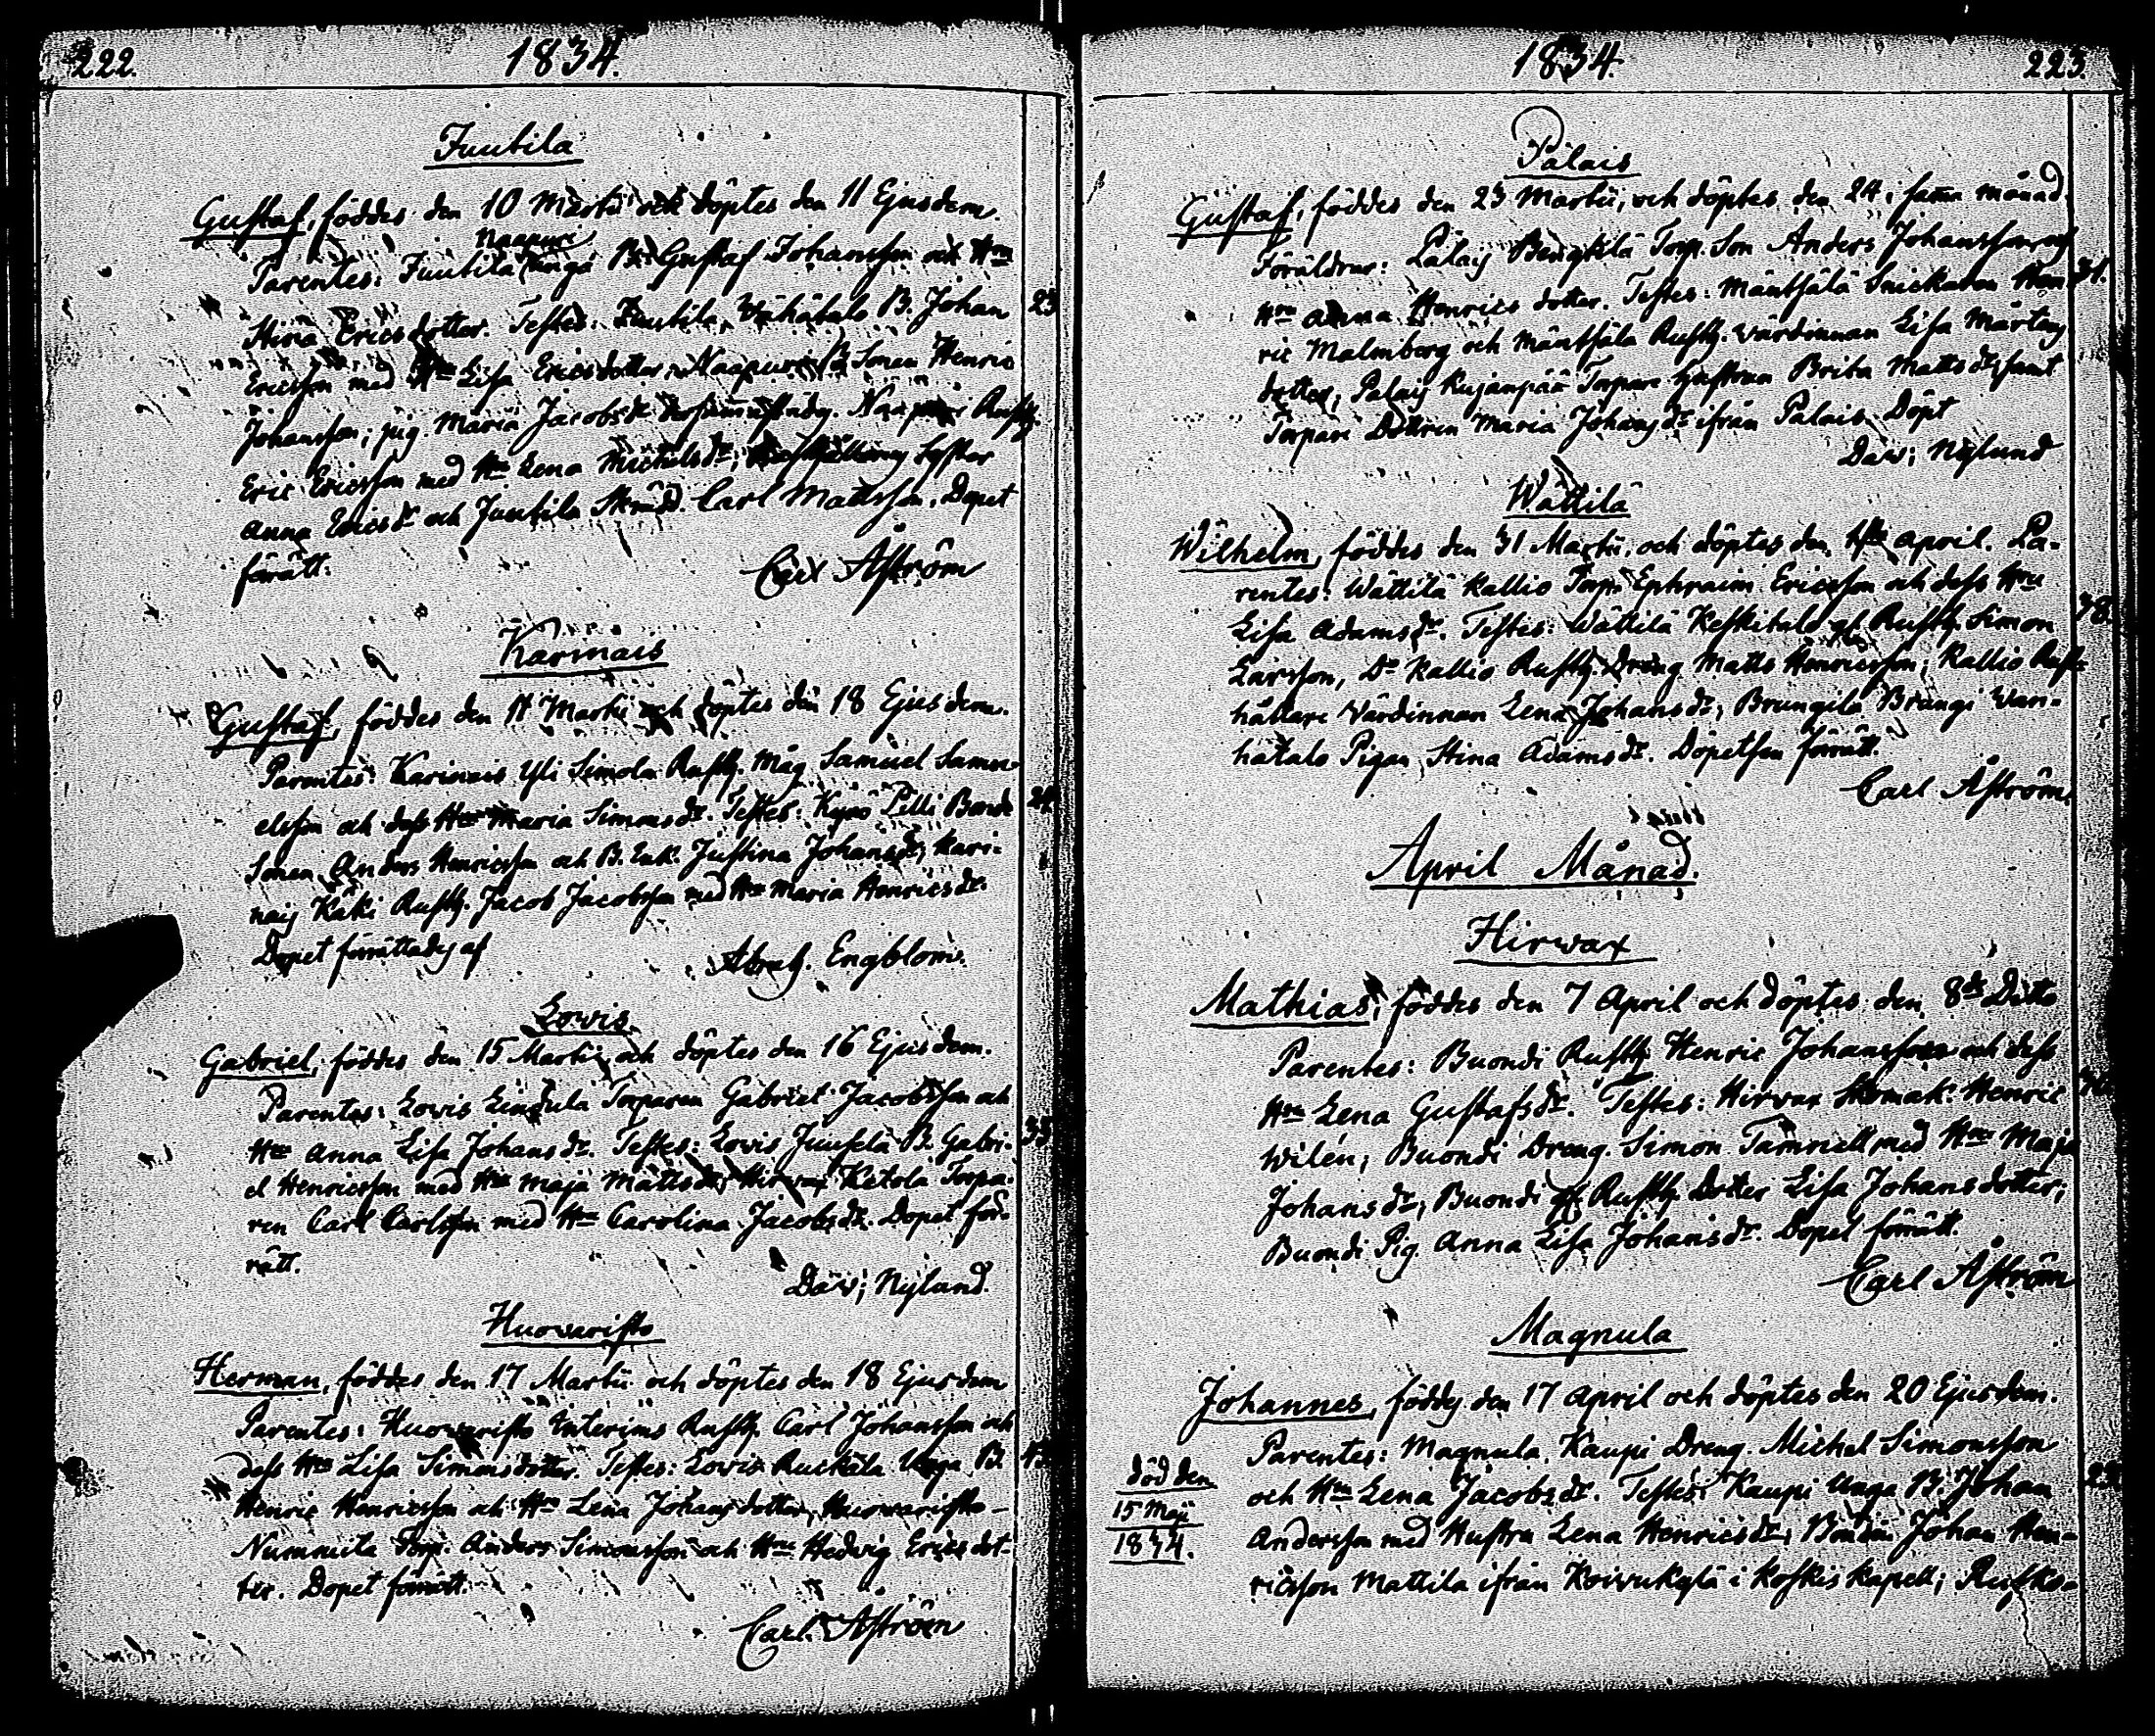 222.
1834.
Juutila
Gustaf, föddes den 10 Martii och döptes den 11 Ejusdem.
Naapuri
Parentes: Juutila unga B. Gustaf Johansson och Hru
Stina Ericsdotter. Testes: Juutila Wähätalo B. Johan
23
Ericsson med Hru Lisa Ericsdotter, Naapuri B. Sonen Henric
Johansson, pig. Maria Jacobsdr Naapuri Rusth.
Eric Ericsson med Hru Lena Michelsdr; Syster
Anna Ericsdr och Juutila Skrädd. Carl Mattsson. Dopet
förätt.
Carl Åström
Karinais
Gustaf, föddes den 11 Martii och döptes den 18 Ejusdem.
Parentes: Karinais Yli Simola Rusth. Måg Samuel Samu-
elsson och dess Hru Maria Simonsdr. Testes: Kyrö Pilli Bonde
Sonen Anders Henricsson och B. Enk. Justina Johansdr; Kari-
nais Käki Rusth. Jacob Jacobsson med Hru Maria Henricsdr.
Dopet förättades af
Abrah. Engblom.
Lowis.
Gabriel, föddes den 15 Martii och döptes den 16 Ejusdem.
Parentes: Lowis Lindula Torparen Gabriel Jacobsson och
Hru Anna Lisa Johansdr. Testes: Lowis Junsela B. Gabri-
33
el Henricsson med Hru Maja Mattsdr, Hirwax Ketola Torpa-
ren Carl Carlsson med Hru Carolina Jacobsdr. Dopet för-
rätt.
Dav; Nylund.
Huowaristo
Herman, föddes den 17 Martii och döptes den 18 Ejusdem
Parentes: Huowaristo Interims Rusth. Carl Johansson och
dess Hru Lisa Simonsdotter. Testes: Lowis Ruckila Unga B.
43
Henric Henricsson och Hru Lena Johansdotter, Huowaristo-
Nummita Torp. Anders Simonsson och Hru Hedwig Ericsdot-
ter. Dopet förrätt.
Carl Åström
1834.
223.
Palais
Gustaf, föddes den 23 Martii, och döptes den 24 i samma månad.
Föräldrar: Palais Bengtilä Torp. Son Anders Johansson och
31.
Hru Anna Henrics dotter. Testes: Mäntsälä Snickaren Hen-
ric Malmborg och Mäntsälä Rusth. värdinnan Lisa Mårtens
dotter, Palais Kujanpää Torpare hustrun Brita Matts dr samt
Torpare Dottren Maria Johansdr ifrån Palais. Döpt
Dav; Nylund
Wättilä
Wilhelm, föddes den 31 Martii, och döptes den 1ste April. Pa-
rentes: Wättilä Kallio Torp. Ephraim Ericsson och dess Hru
Lisa Adamsdr. Testes: Wättilä Keskitalo Rusth. Simon
38.
Larsson, Do Kallio Rusth. Dreng Matts Henricsson; Kallio Rust-
hållare Värdinnan Lena Johansdr, Brungila Brungi Wari-
hätalo Pigan Stina Adamsdr. Döpelsen förrätt.
Carl Åström.
April Månad.
Hirwax
Mathias, föddes den 7 April och döptes den 8de Ditto
Parentes: Buondi Rusth. Henric Johansson och dess
Hru Lena Gustafsdr. Testes: Hirwax Skomak. Henric
Wilén; Buondi Dreng. Simon Tamnell med Hru Maja
Johansdr; Buondi Rusth. Dotter Lisa Johansdotter;
Buondi Pig. Anna Lisa Johansdr. Dopet förrätt.
Carl Åström
Magnula
Johannes, föddes den 17 April och döptes den 20 Ejusdem.
Parentes: Magnula Kaupi Dreng. Michel Simonsson
död den
15 Maji
1834.
och Hru Lena Jacobsdr. Testes: Kaupi unga B. Johan
Andersson med Hustru Lena Henricsdr; Bonden Johan Hen-
ricsson Mattila ifrån Koivukylä i Koskis kapell; Rusko-